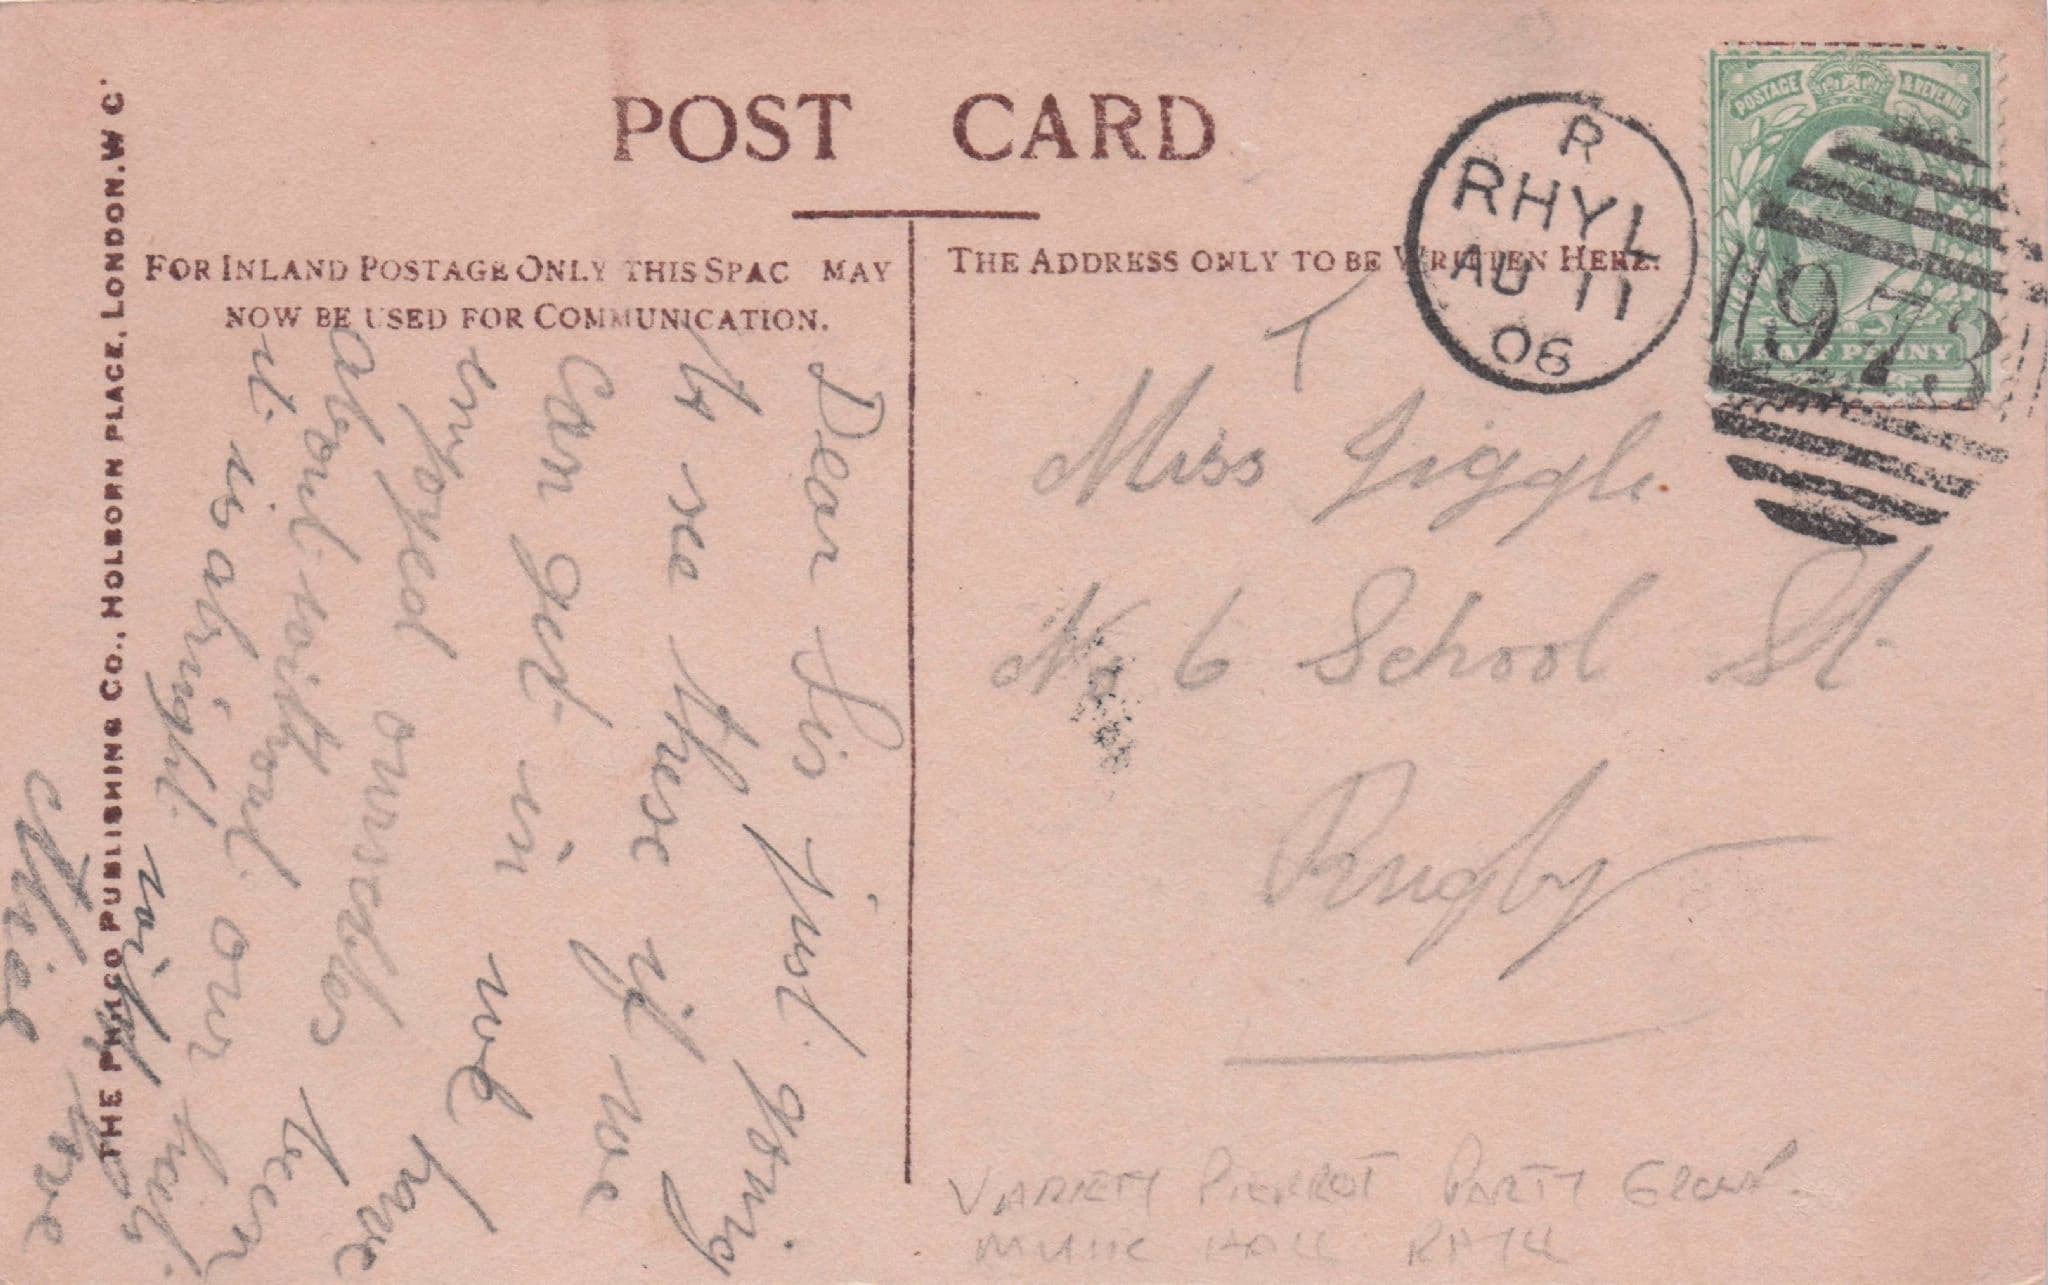 POST CARD
FOR INLAND POSTAGE ONLY THIS SPAC MAY
NOW BE USED FOR COMMUNICATION.
THE ADDRESS ONLY TO BE WRITTEN HERE.
THE PHILCO PUBLISHING CO., HOLBORN PLACE, LONDON. W C
R
RHYL
AU 11
06
POSTAGE & REVENUE
HALF PENNY
973
Dear Sis just going
to see these if we
can get in we have
enjoyed ourselves
about without been
it is alright our
with
love
Miss Jiggle
No 6 School St
Rugby
VARIETY PIERROT PARTY GROUP.
MUSIC HALL RHYL